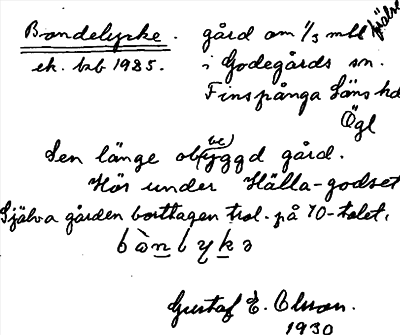 Bondelycke. gård om 1/3 mtl frälse
ek. bzb 1985. i Godegårds sn.
Finspånga Läns hd
Ögl
Sen länge obebyggd gård.
Hör under Hälla-godset
Själva gården borttagen trol. på 70-talet.
Gustaf E. Olsson.
1930